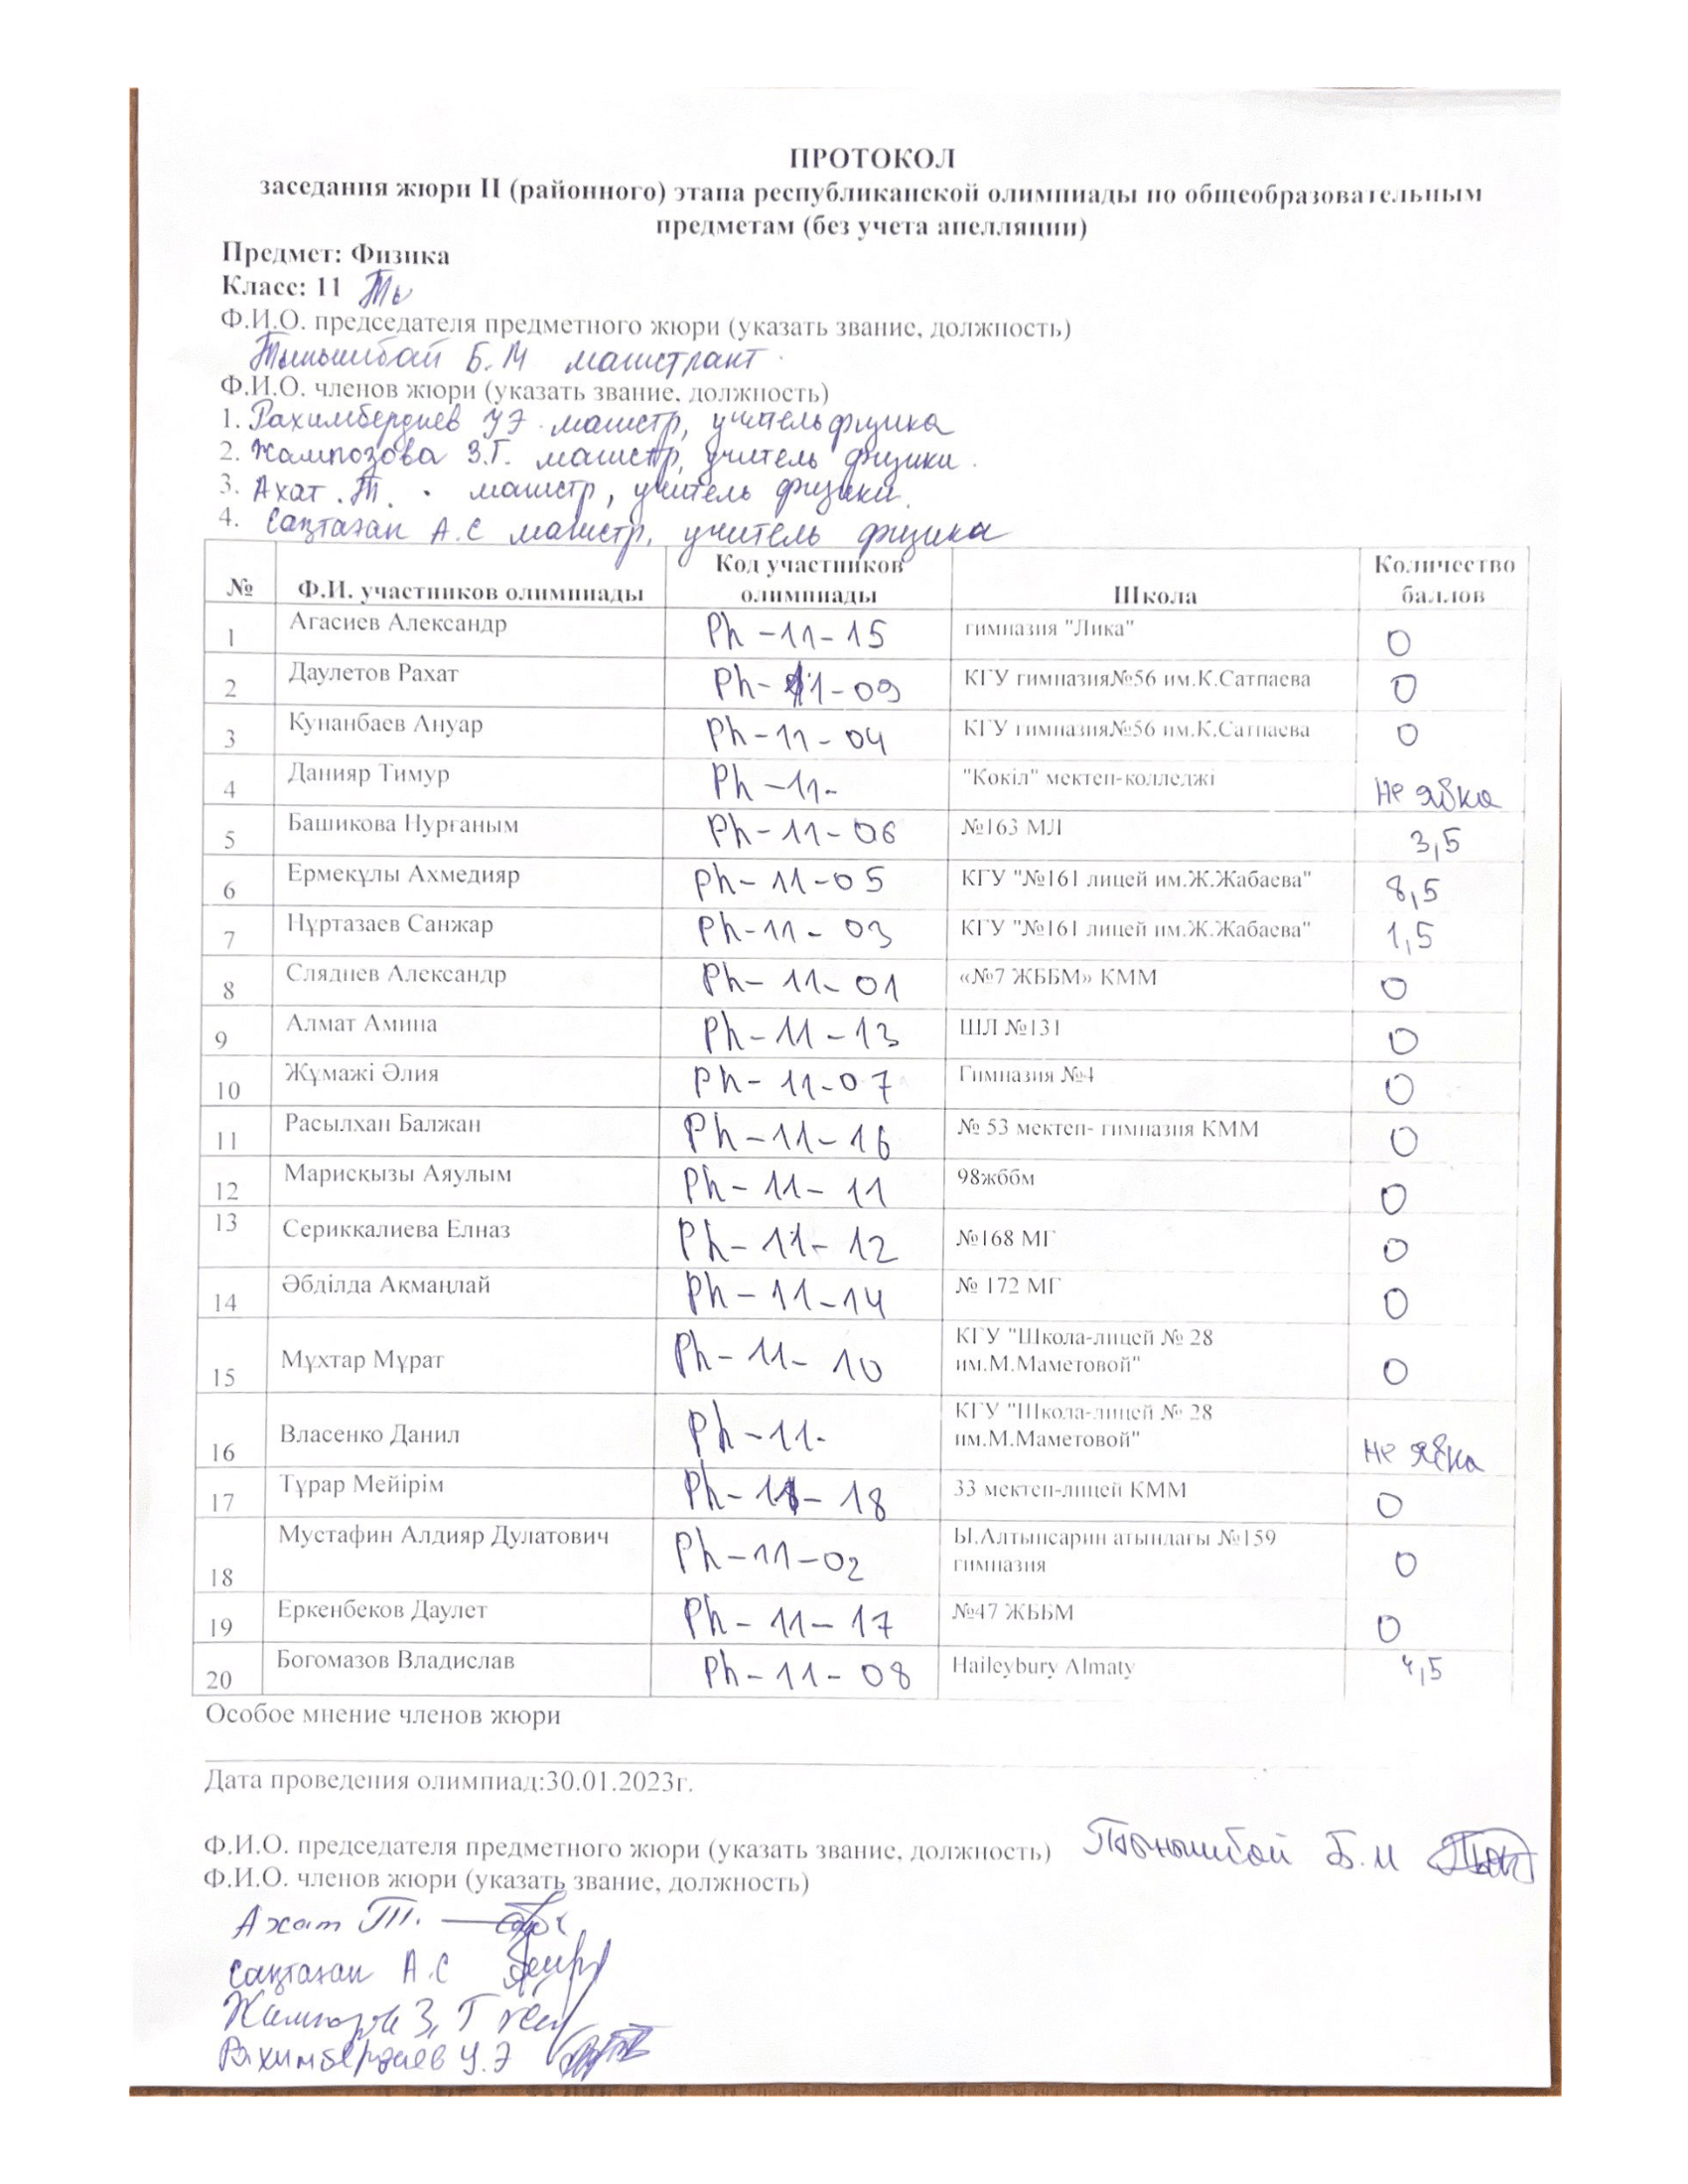 ПРОТОКОЛ
заседания жюри II (районного) этапа республиканской олимпиады по общеобразовательным
предметам (без учета апелляции)
Предмет: Физика
Класс: 11
Ф.И.О. председателя предметного жюри (указать звание, должность)
Тынышбай Б.М магистрант
Ф.И.О. членов жюри (указать звание, должность)
1. Рахимбердиев УЭ. магистр, учитель физика
2. Жампозова З.Г. магистр, учитель физики.
3. Ахат. Т. магистр, учитель физики.
4. Саңтазан А.С магистр, учитель физика
№ Ф.И. участников олимпиады Код участников олимпиады Школа Количество баллов
1 Агасиев Александр Ph-11-15 гимназия "Лика" 0
2 Даулетов Рахат Ph-11-09 КГУ гимназия№56 им.К.Сатпаева 0
3 Кунанбаев Ануар Ph-11-04 КГУ гимназия№56 им.К.Сатпаева 0
4 Данияр Тимур Ph-11- "Көкіл" мектеп-колледжі Не явка
5 Башикова Нурганым Ph-11-06 №163 МЛ 3,5
6 Ермекұлы Ахмедияр Ph-11-05 КГУ "№161 лицей им.Ж.Жабаева" 8,5
7 Нұртазаев Санжар Ph-11-03 КГУ "№161 лицей им.Ж.Жабаева" 1,5
8 Сляднев Александр Ph-11-01 «№7 ЖББМ» КММ 0
9 Алмат Амина Ph-11-13 ШЛ №131 0
10 Жұмажі Әлия Ph-11-07 Гимназия №4 0
11 Расылхан Балжан Ph-11-16 № 53 мектеп- гимназия КММ 0
12 Марисқызы Аяулым Ph-11-11 98жббм 0
13 Серикқалиева Елназ Ph-11-12 №168 МГ 0
14 Әбділда Ақмаңлай Ph-11-14 № 172 МГ 0
15 Мұхтар Мұрат Ph-11-10 КГУ "Школа-лицей № 28 им.М.Маметовой" 0
16 Власенко Данил Ph-11- КГУ "Школа-лицей № 28 им.М.Маметовой" Не явка
17 Тұрар Мейірім Ph-11-18 33 мектеп-лицей КММ 0
18 Мустафин Алдияр Дулатович Ph-11-02 Ы.Алтынсарин атындағы №159 гимназия 0
19 Еркенбеков Даулет Ph-11-17 №47 ЖББМ 0
20 Богомазов Владислав Ph-11-08 Haileybury Almaty 4,5
Особое мнение членов жюри
Дата проведения олимпиад:30.01.2023г.
Ф.И.О. председателя предметного жюри (указать звание, должность) Тынышбай Б.М
Ф.И.О. членов жюри (указать звание, должность)
Ахат Т.
Саңтазан А.С
З.Г
Рахимбердиев У.Э